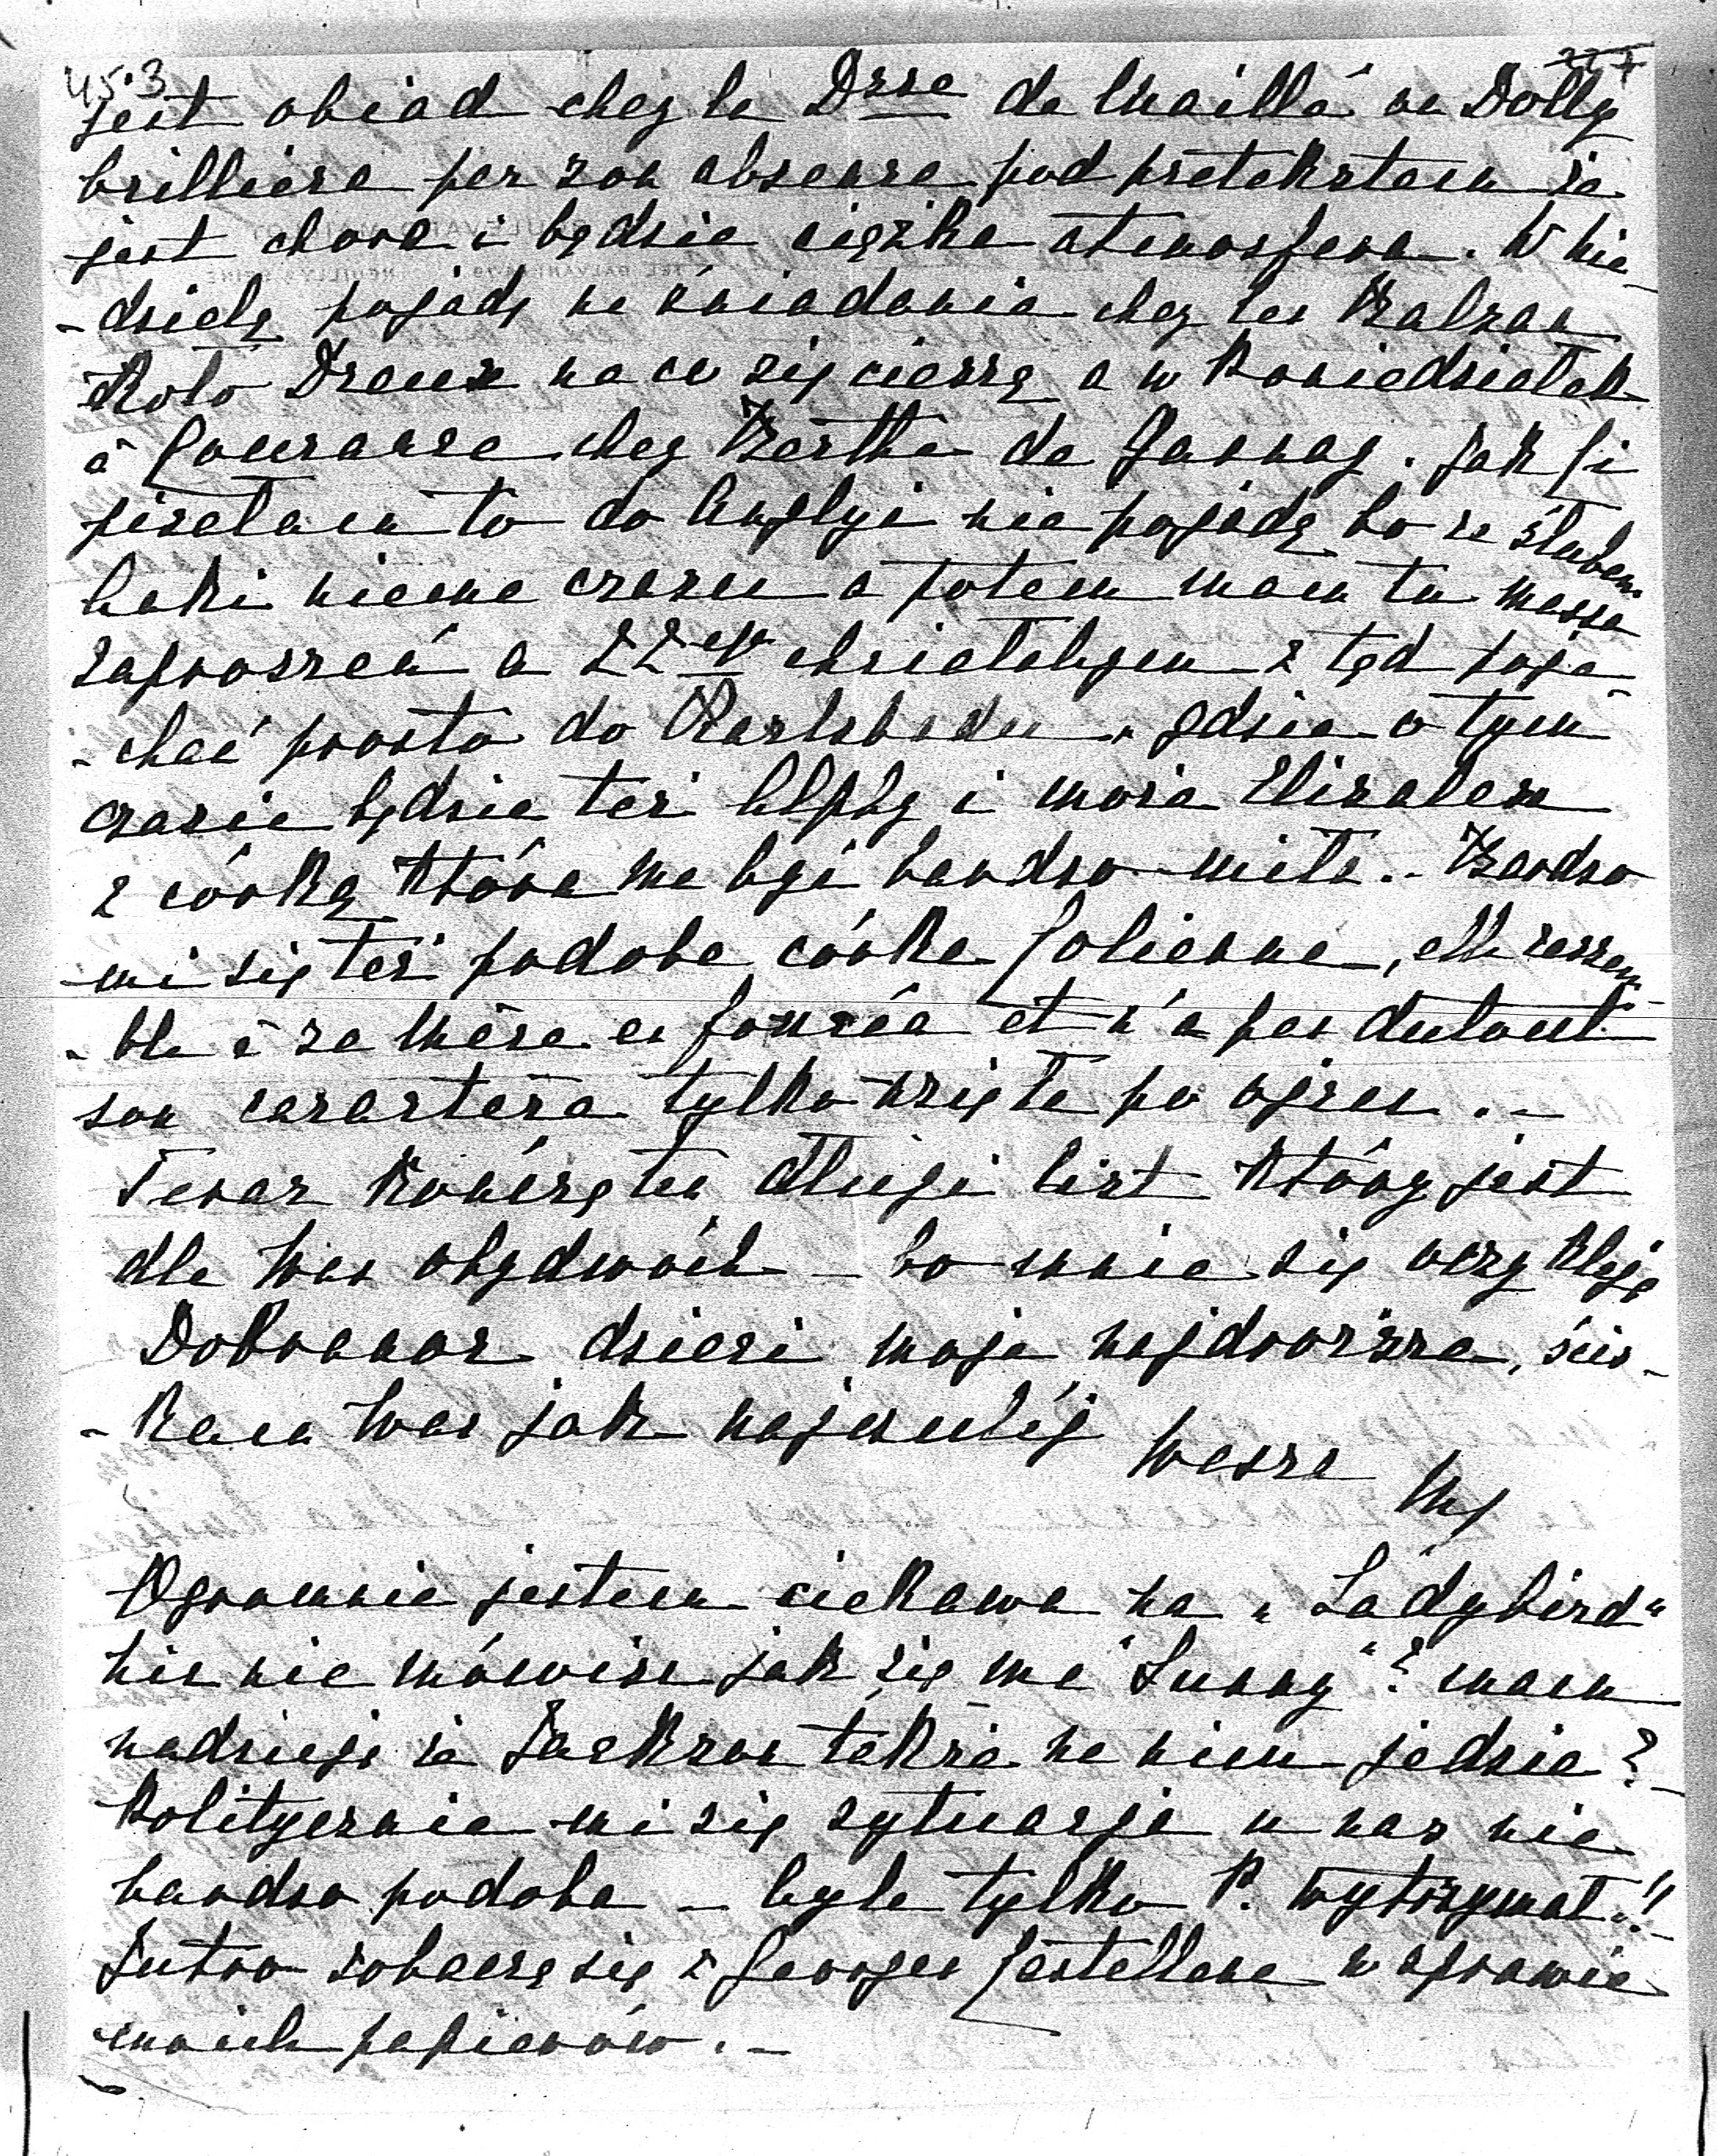 453
jest obiad chez la Dsse de Maillé où Dolly
brillera par son absence pod pretekstem że
jest chora i będzie ciężka atmosfera. W nie
- dzielę pojadę na śniadanie chez les Balsan
Koło Dreux na co się cieszę a w Poniedziałek
à Courance chez Berthe de Ganay. Jak Ci
pisałam to do Anglyi nie pojadę bo ze ślubem
Laki niema czasu a potem mam tu massa
zaproszeń a 22go chciałabym z tąd poje
- chać prosto do Karlsbadu, gdzie w tym
czasie będzie też Alphy i może Elisalex
z córką która ma być bardzo miła.. Bardzo
mi się też podoba córka Jolienne, elle ressem
- ble à sa Mère en foncée et n'a pas du tout
son caractère tylko wzięła po ojcu. -
Teraz kończę ten długi list który jest
dla Was obydwóch - bo mnie się oczy kleją
Dobranoc dzieci moje najdroższe, ścis-
- kam Was jak najczuléj
Wasza
My
Ogromnie jestem ciekawa na „Ladybird"
nic nie mówisz jak się ma "Sunny"? mam
nadzieję że Jackson także na nim jedzie? -
Politycznie mi się sytuacja u nas nie
bardzo podoba - byle tylko P. wytrzymał..!!
Jutro zobaczę się z Georges Castellane w sprawie
moich papierów. -